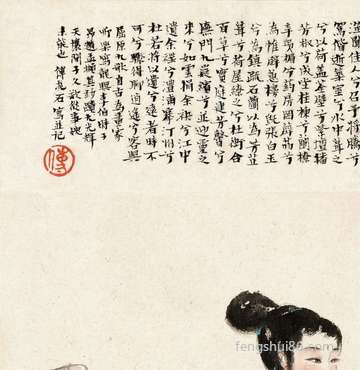 澨聞佳人兮召予將騰
駕偕逝築室兮水中葺之
兮以荷蓋蓀壁兮紫壇播
芳椒兮成堂桂棟兮蘭橑
辛夷楣兮药房罔薜荔兮
為帷擗蕙櫋兮既張白玉
兮為鎮疏石蘭兮以為芳芷
葺兮荷屋繚之兮杜衡合
百草兮實庭建芳馨兮
廡門九嶷繽兮並迎靈之
來兮如雲捐余袂兮江中
遺余褋兮澧浦搴汀洲兮
杜若將以遺兮遠者時不
可兮驟得聊逍遙兮容與
屈原九歌自古為畫家
所樂寫李伯時子
昂趙孟頫其妙蹟尤光輝
天壤間予久欲從事此
未能也 傅抱石寫並記
傅
fengshui86.com